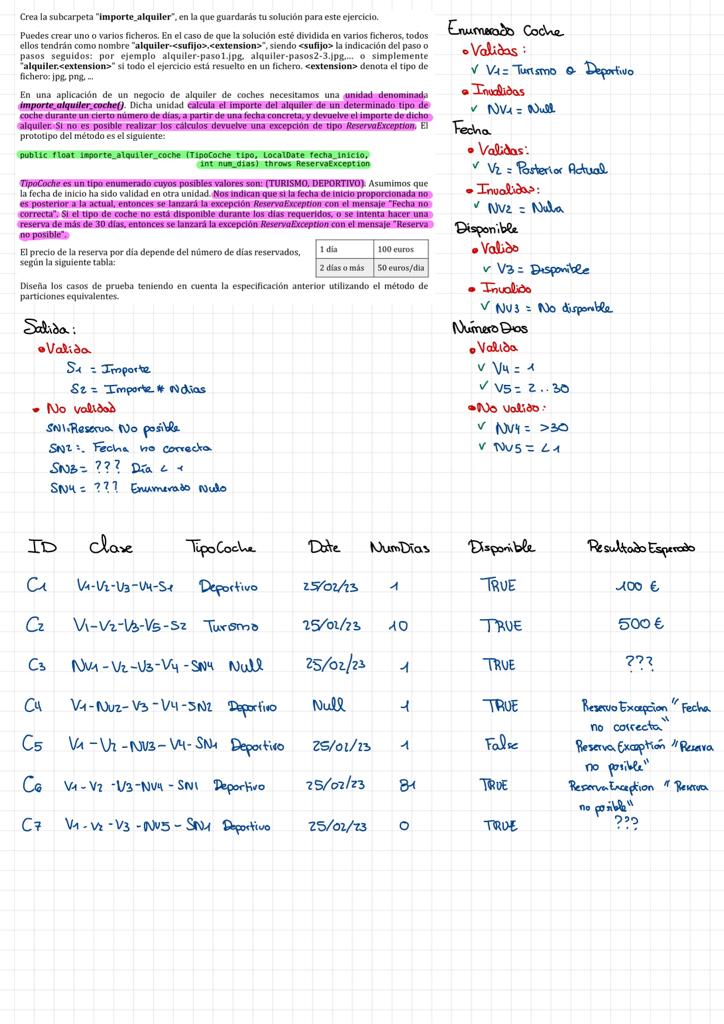 Crea la subcarpeta "importe_alquiler", en la que guardarás tu solución para este ejercicio.
Puedes crear uno o varios ficheros. En el caso de que la solución esté dividida en varios ficheros, todos
ellos tendrán como nombre "alquiler-<sufijo>.<extension>", siendo <sufijo> la indicación del paso o
pasos seguidos: por ejemplo alquiler-paso1.jpg, alquiler-pasos2-3.jpg,... o simplemente
"alquiler.<extension>" si todo el ejercicio está resuelto en un fichero. <extension> denota el tipo de
fichero: jpg, png, ...
En una aplicación de un negocio de alquiler de coches necesitamos una unidad denominada
importe_alquiler_coche(). Dicha unidad calcula el importe del alquiler de un determinado tipo de
coche durante un cierto número de días, a partir de una fecha concreta, y devuelve el importe de dicho
alquiler. Si no es posible realizar los cálculos devuelve una excepción de tipo ReservaException. El
prototipo del método es el siguiente:
public float importe_alquiler_coche (TipoCoche tipo, LocalDate fecha_inicio,
int num_dias) throws ReservaException
TipoCoche es un tipo enumerado cuyos posibles valores son: (TURISMO, DEPORTIVO). Asumimos que
la fecha de inicio ha sido validad en otra unidad. Nos indican que si la fecha de inicio proporcionada no
es posterior a la actual, entonces se lanzará la excepción ReservaException con el mensaje "Fecha no
correcta". Si el tipo de coche no está disponible durante los días requeridos, o se intenta hacer una
reserva de más de 30 días, entonces se lanzará la excepción ReservaException con el mensaje "Reserva
no posible".
El precio de la reserva por día depende del número de días reservados,
según la siguiente tabla:
1 día 100 euros
2 días o más 50 euros/día
Diseña los casos de prueba teniendo en cuenta la especificación anterior utilizando el método de
particiones equivalentes.
Enumerado Coche
• Validas:
✓ V1 = Turismo o Deportivo
• Invalidas
✓ NV1 = Null
Fecha
• Validas:
✓ V2 = Posterior Actual
• Invalidas:
✓ NV2 = Nula
Disponible
• Valido
✓ V3 = Disponible
• Invalido
✓ NV3 = No disponible
Número Dias
• Valida
✓ V4 = 1
✓ V5 = 2..30
• No valido:
✓ NV4 = >30
✓ NV5 = <1
Salida:
• Valida
S1 = Importe
S2 = Importe * Ndias
• No validad
SN1: Reserva No posible
SN2: Fecha no correcta
SN3 = ??? Día < 1
SN4 = ??? Enumerado Nulo
ID Clase TipoCoche Date NumDías Disponible Resultado Esperado
C1 V1-V2-V3-V4-S1 Deportivo 25/02/23 1 TRUE 100 €
C2 V1-V2-V3-V5-S2 Turismo 25/02/23 10 TRUE 500 €
C3 NV1-V2-V3-V4-SN4 Null 25/02/23 1 TRUE ???
C4 V1-NV2-V3-V4-SN2 Deportivo Null 1 TRUE Reserva Excepcion "Fecha
no correcta"
C5 V1-V2-NV3-V4-SN1 Deportivo 25/02/23 1 False Reserva Exception "Reserva
no posible"
C6 V1-V2-V3-NV4-SN1 Deportivo 25/02/23 31 TRUE Reserva Exception "Reserva
no posible"
C7 V1-V2-V3-NV5-SN1 Deportivo 25/02/23 0 TRUE ???